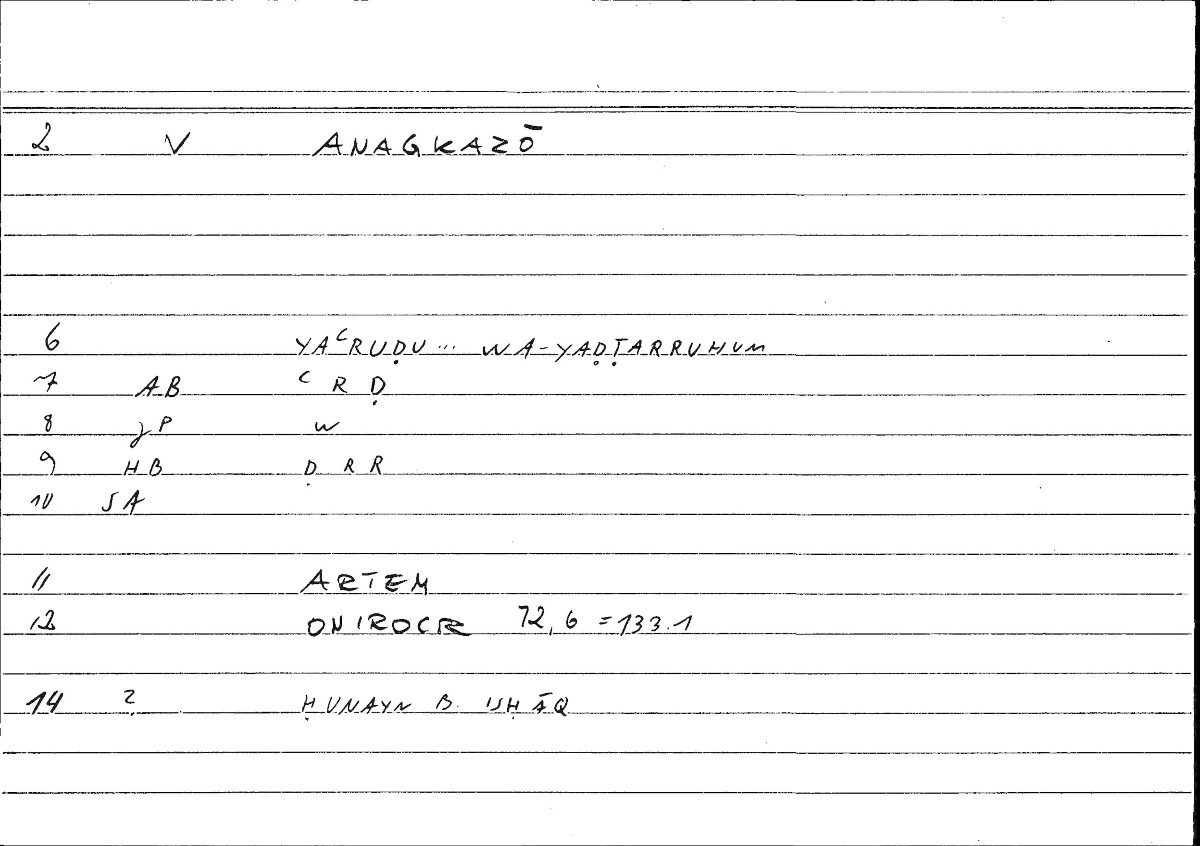 2 V ANAGKAZŌ
6 YAʿRUḌU ... WA-YAḌṬARRUHUM
7 AB ʿ R Ḍ
8 JP W
9 HB Ḍ R R
10 SA
11 ARTEM
12 ONIROCR 72,6 = 133.1
14 Ẓ ḤUNAYN B. ISḤĀQ